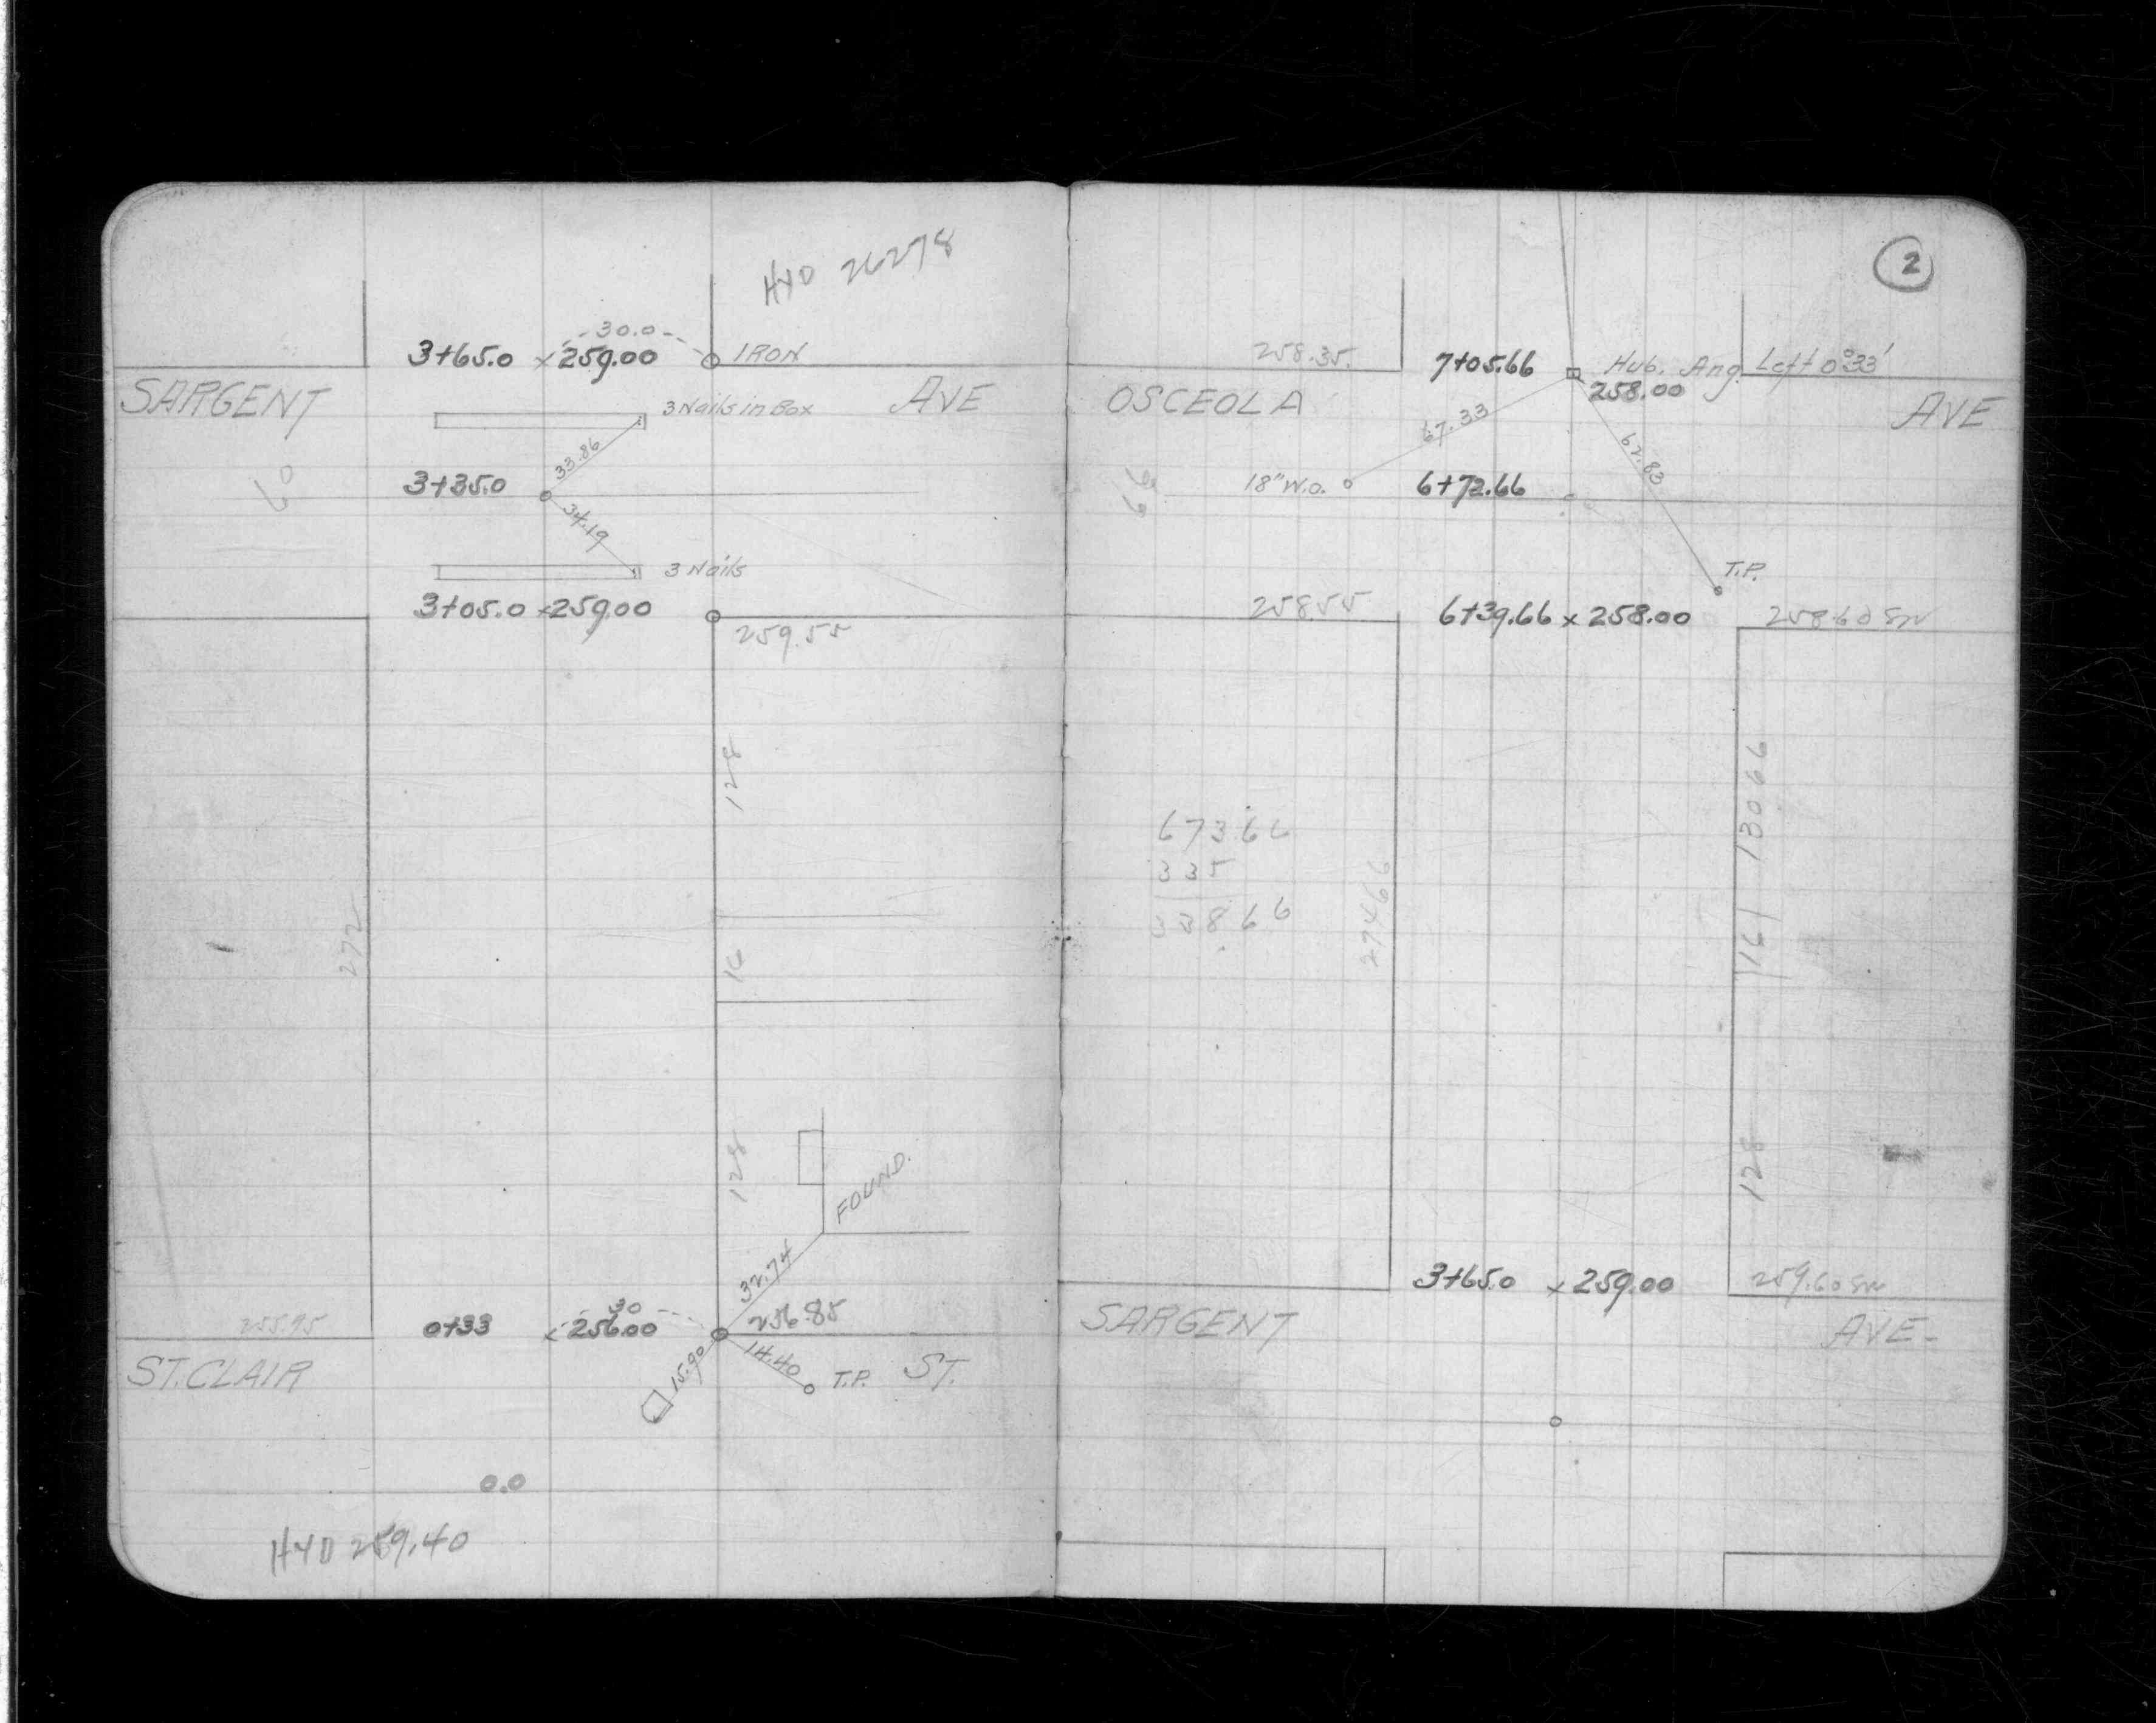 HYD 26278
30.0
3+65.0 x 259.00 IRON
SARGENT AVE
3 Nails in Box
33.86
60
3+35.0
34.19
3 Nails
3+05.0 x 259.00
259.55
128
272
16
128
FOUND.
32.74
30
255.95 0+33 x 256.00 256.85
15.90
14.40
ST. CLAIR T.P. ST.
0.0
HYD 259.40
2
258.35. 7+05.66 Hub. Ang. Left 0°33'
258.00
OSCEOLA AVE
67.33
62.83
66
18" W.O. 6+72.66
T.P.
258.55 6+39.66 x 258.00 258.60 SW
130 66
673.66
335
338 66
274 66
16
128
3+65.0 x 259.00 259.60 SW
SARGENT AVE-